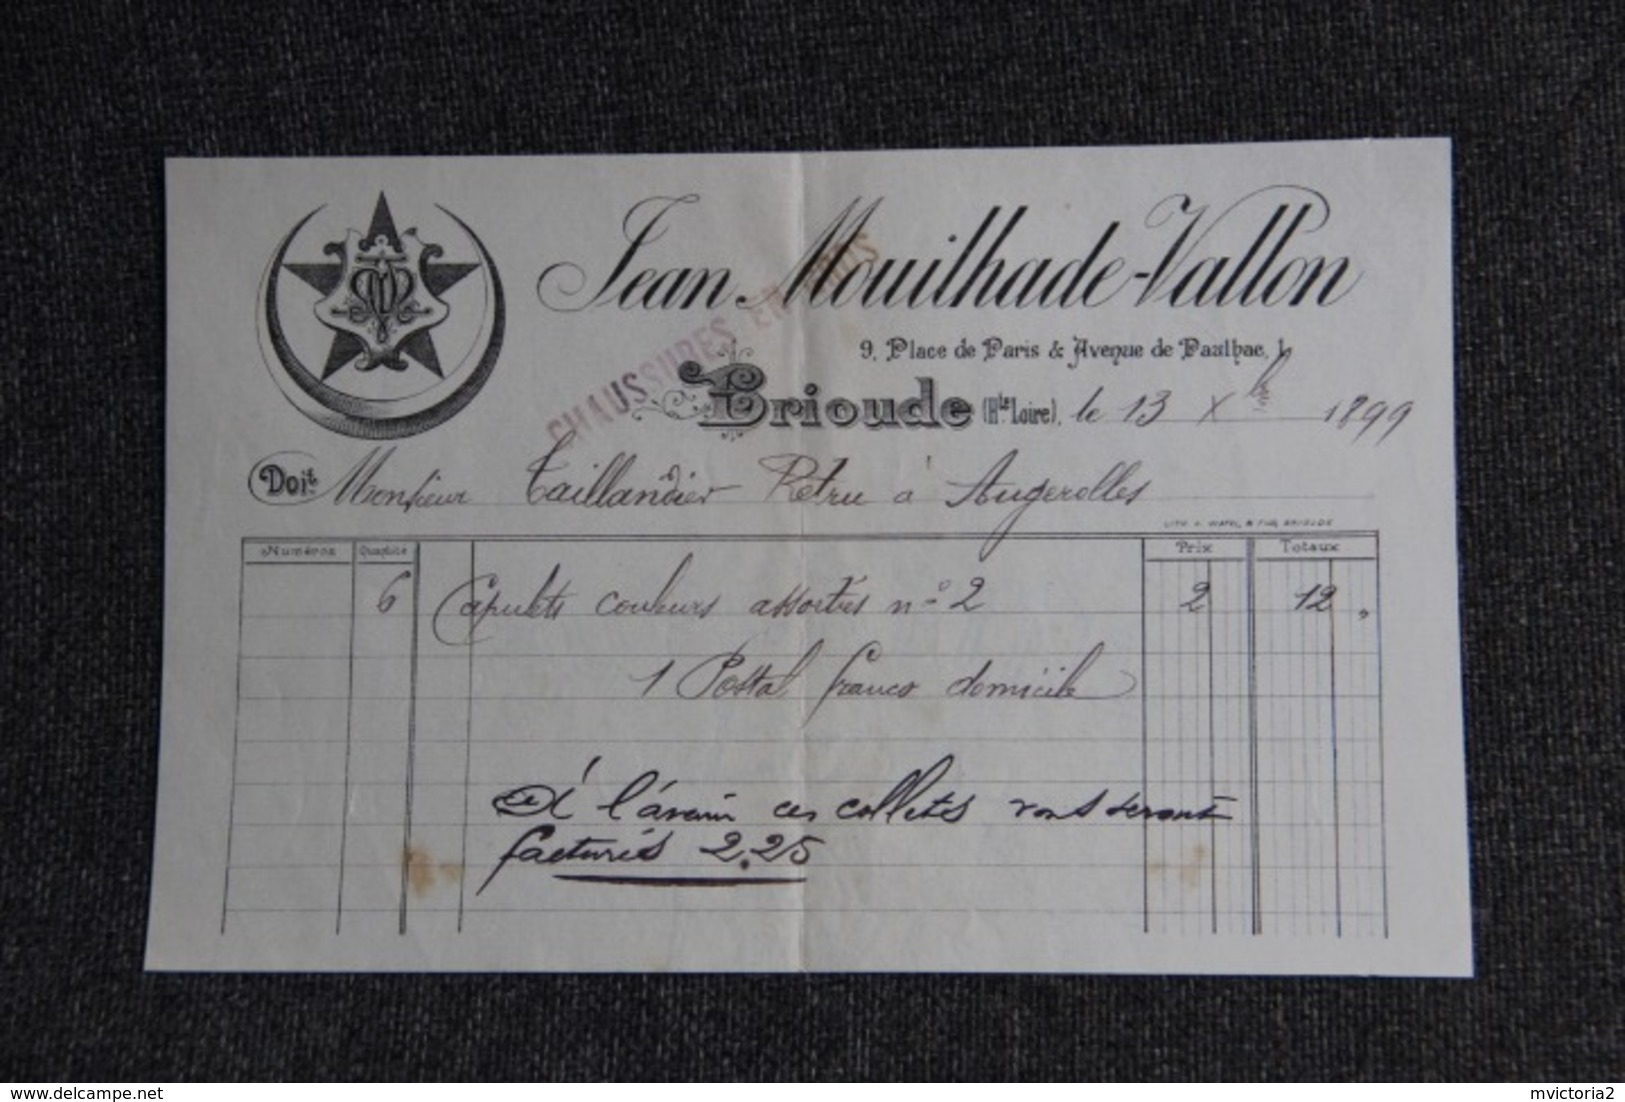 Jean Mouilhade-Vallon
CHAUSSURES EN GROS
9, Place de Paris & Avenue de Paulhac, 1
Brioude (Hte Loire), le 13 Xbre 1899
Doit Monsieur Taillandier Petru à Augerolles
Numéros Quantité Prix Totaux
6 Capulets couleurs assortis n° 2 2 12 "
1 Postal franco domicile
A l'avenir ces collets vous seront
facturés 2,25
delcampe.net
mvictoria2